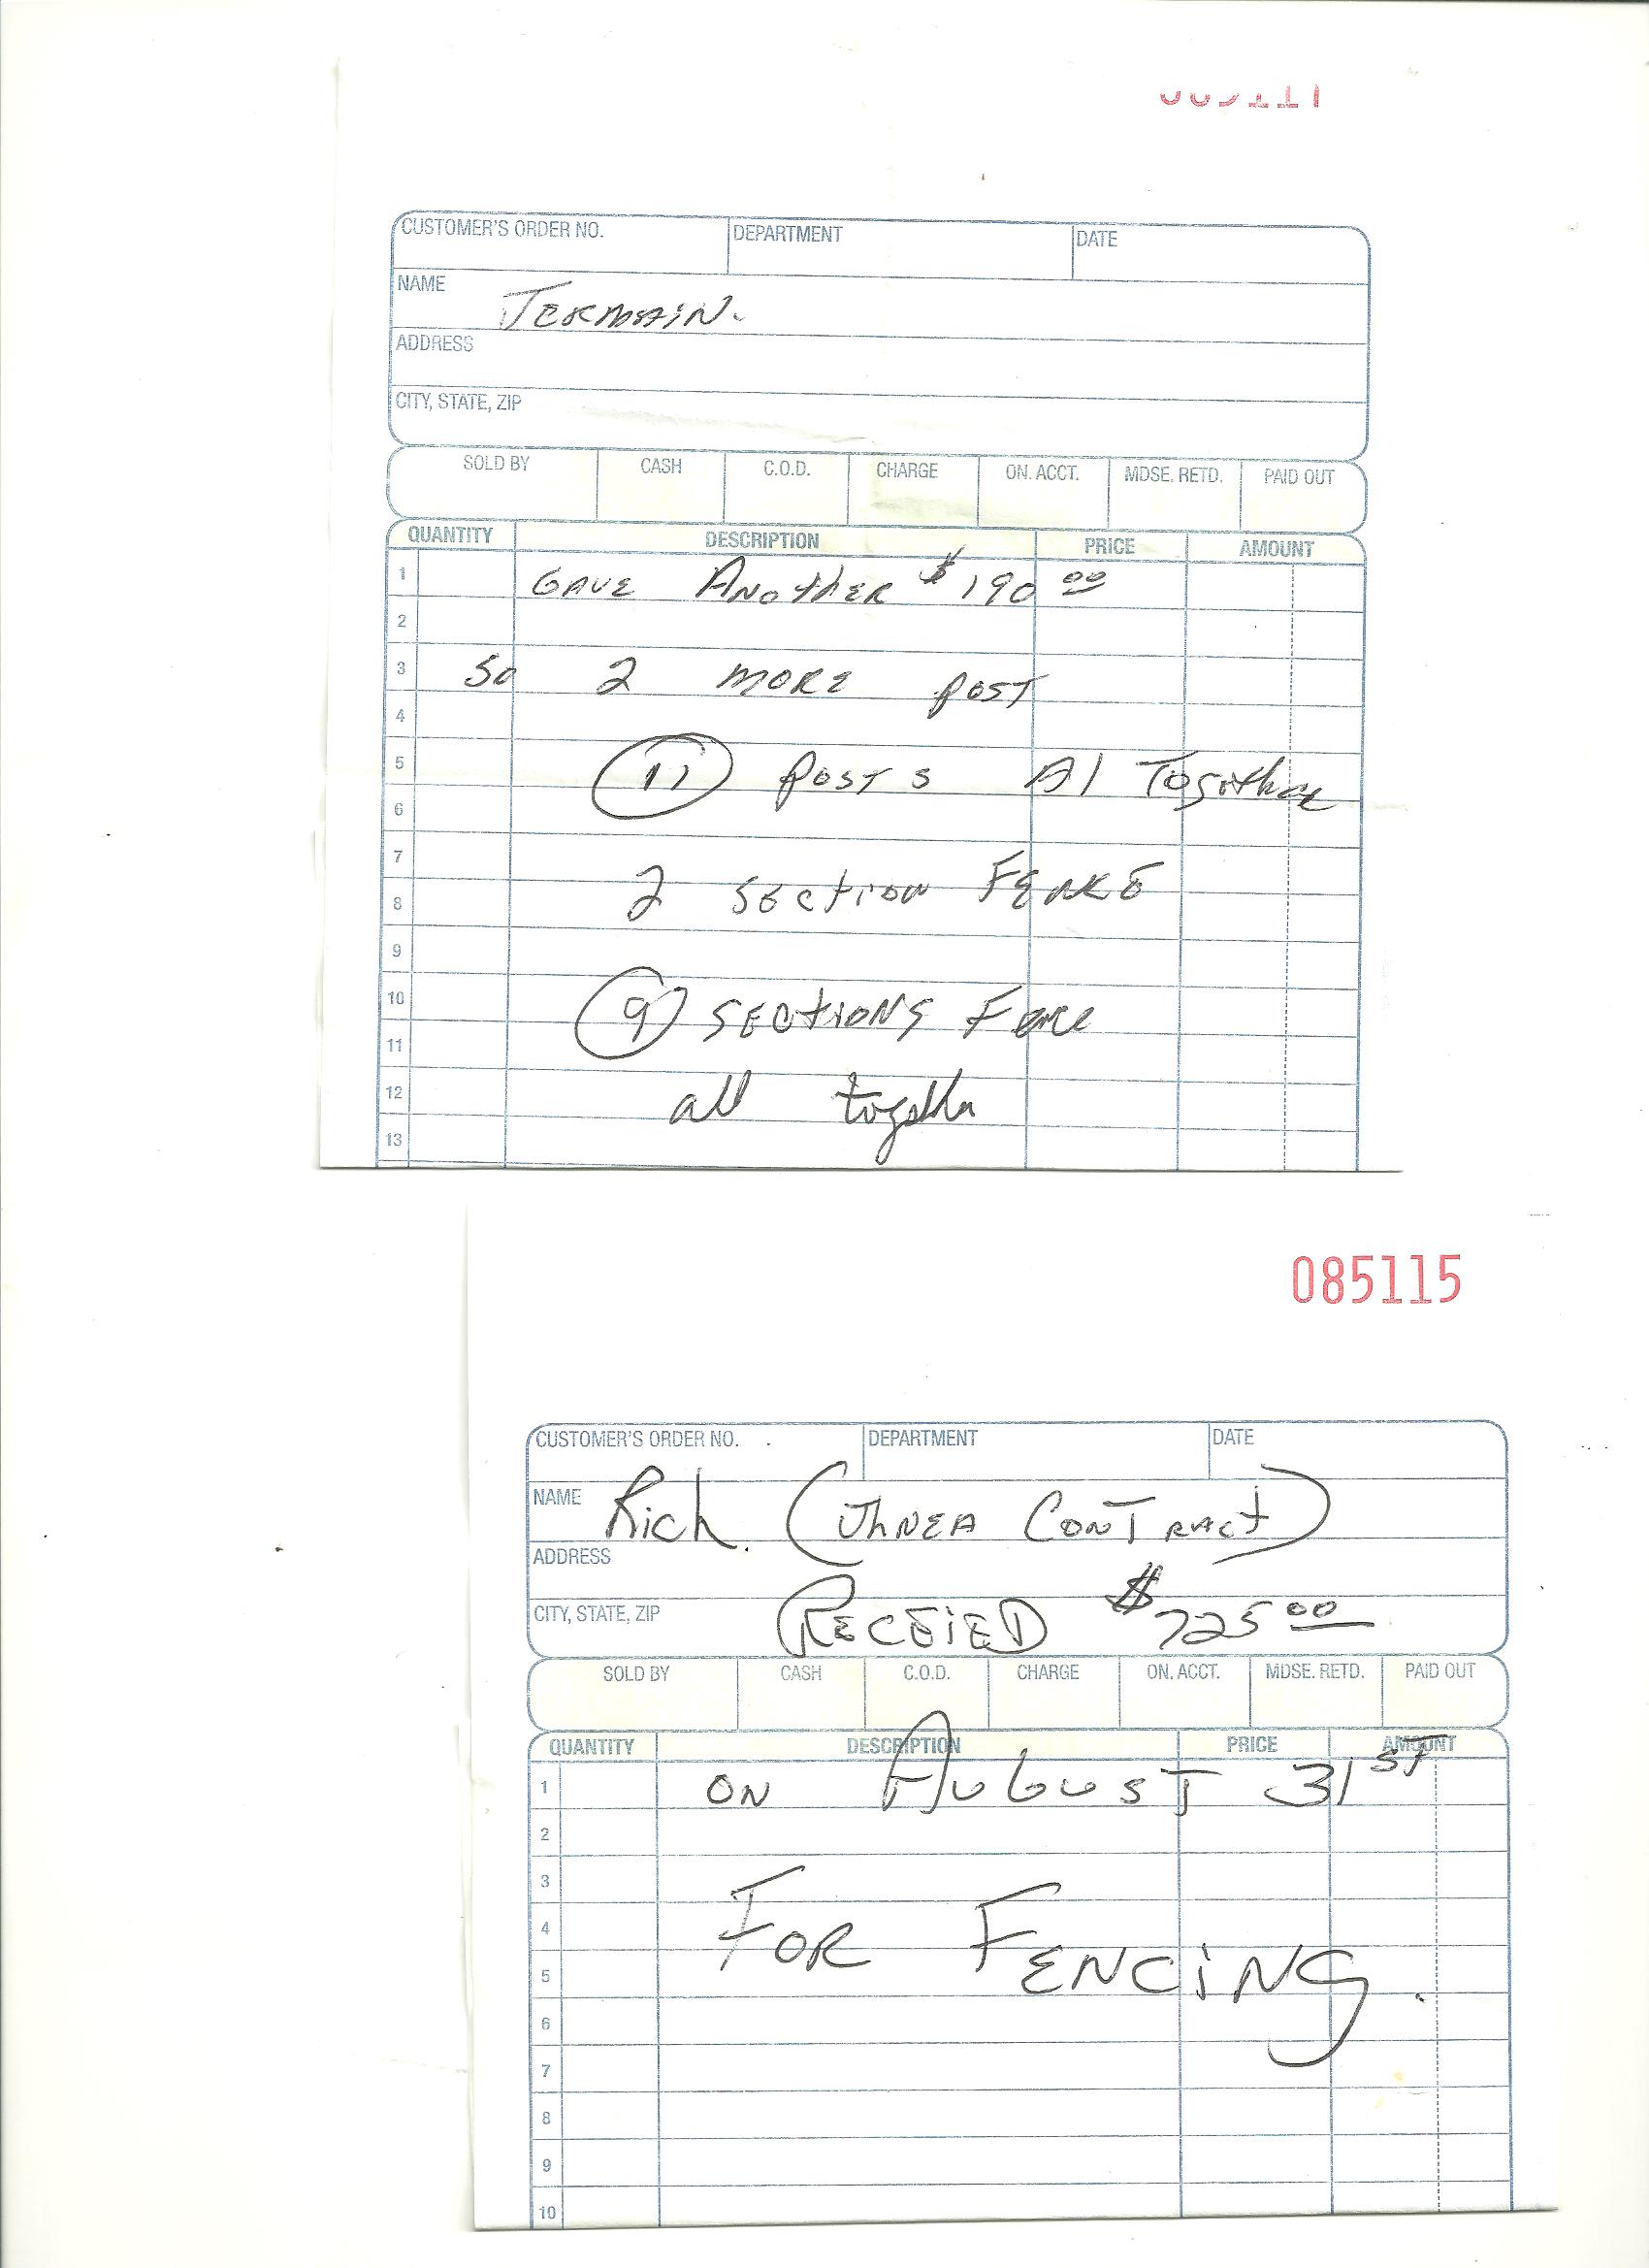 CUSTOMER'S ORDER NO. DEPARTMENT DATE
NAME JERMAIN.
ADDRESS
CITY, STATE, ZIP
SOLD BY CASH C.O.D. CHARGE ON. ACCT. MDSE. RETD. PAID OUT
QUANTITY DESCRIPTION PRICE AMOUNT
1 GAVE ANOTHER $190 00
2
3 SO 2 MORE POST
4
5 11 POSTS Al Together
6
7
8 2 SECTION FENCE
9
10 9 SECTIONS Fence
11
12 all together
13
085115
CUSTOMER'S ORDER NO. DEPARTMENT DATE
NAME Rich. ( CONTRACT)
ADDRESS
CITY, STATE, ZIP RECEIED $725 00
SOLD BY CASH C.O.D. CHARGE ON. ACCT. MDSE. RETD. PAID OUT
QUANTITY DESCRIPTION PRICE AMOUNT
1 ON AUGUST 31ST
2
3
4 FOR FENCING.
5
6
7
8
9
10